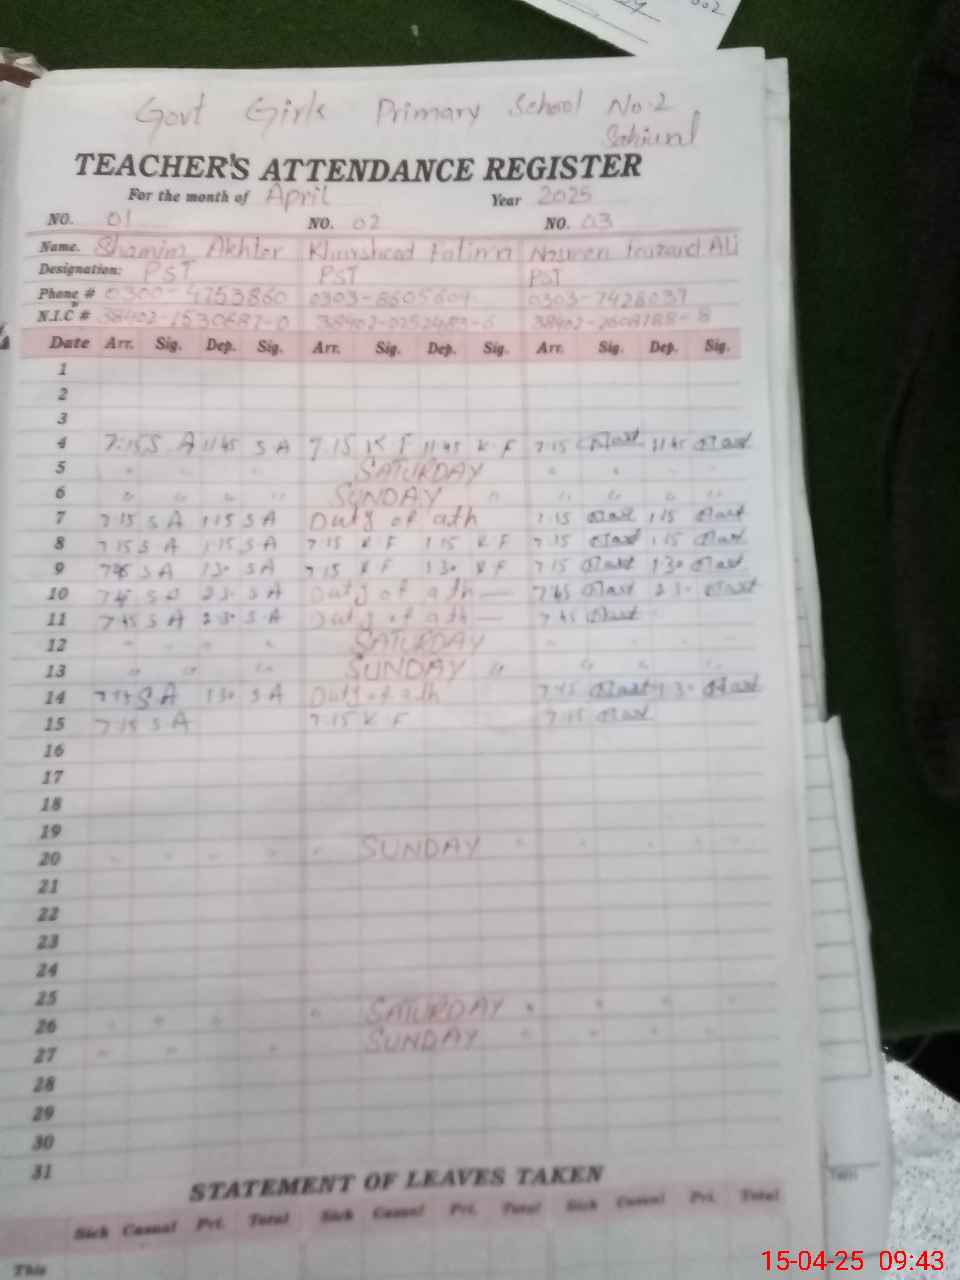 002
Govt Girls Primary School No.2
TEACHER'S ATTENDANCE REGISTER
For the month of April Year 2025
NO. 01 NO. 02 NO. 03
Name. Shamim Akhter Khursheed Fatima Ali
Designation: PST PST PST
Phone # 0300-4753860 0303-8605604 0303-7428037
N.I.C # 38402-1530687-0 38402-0252483-6 38402-2608188-8
Date Arr. Sig. Dep. Sig. Arr. Sig. Dep. Sig. Arr. Sig. Dep. Sig.
1
2
3
4 7:15 S A 11 45 S A 7 15 K F 11 45 K F 7 15 11 45
5 SATURDAY
6 SUNDAY
7 7 15 S A 1 15 S A Duty of ath 7 15 1 15
8 7 15 S A 1 15 S A 7 15 K F 1 15 K F 7 15 1 15
9 7 45 S A 1 30 S A 7 15 K F 1 30 K F 7 15 1 30
10 7 45 S A 2 30 S A Duty of ath — 7 45 2 30
11 7 45 S A 2 30 S A Duty of ath — 7 45
12 SATURDAY
13 SUNDAY
14 S A 1 30 S A Duty of ath 7 45 1 30
15 7 15 S A 7 15 K F 7 15
16
17
18
19
20 SUNDAY
21
22
23
24
25
26 SATURDAY
27 SUNDAY
28
29
30
31
STATEMENT OF LEAVES TAKEN
Sick Casual Pri. Total Sick Casual Pri. Total Sick Casual Pri. Total
This
15-04-25 09:43